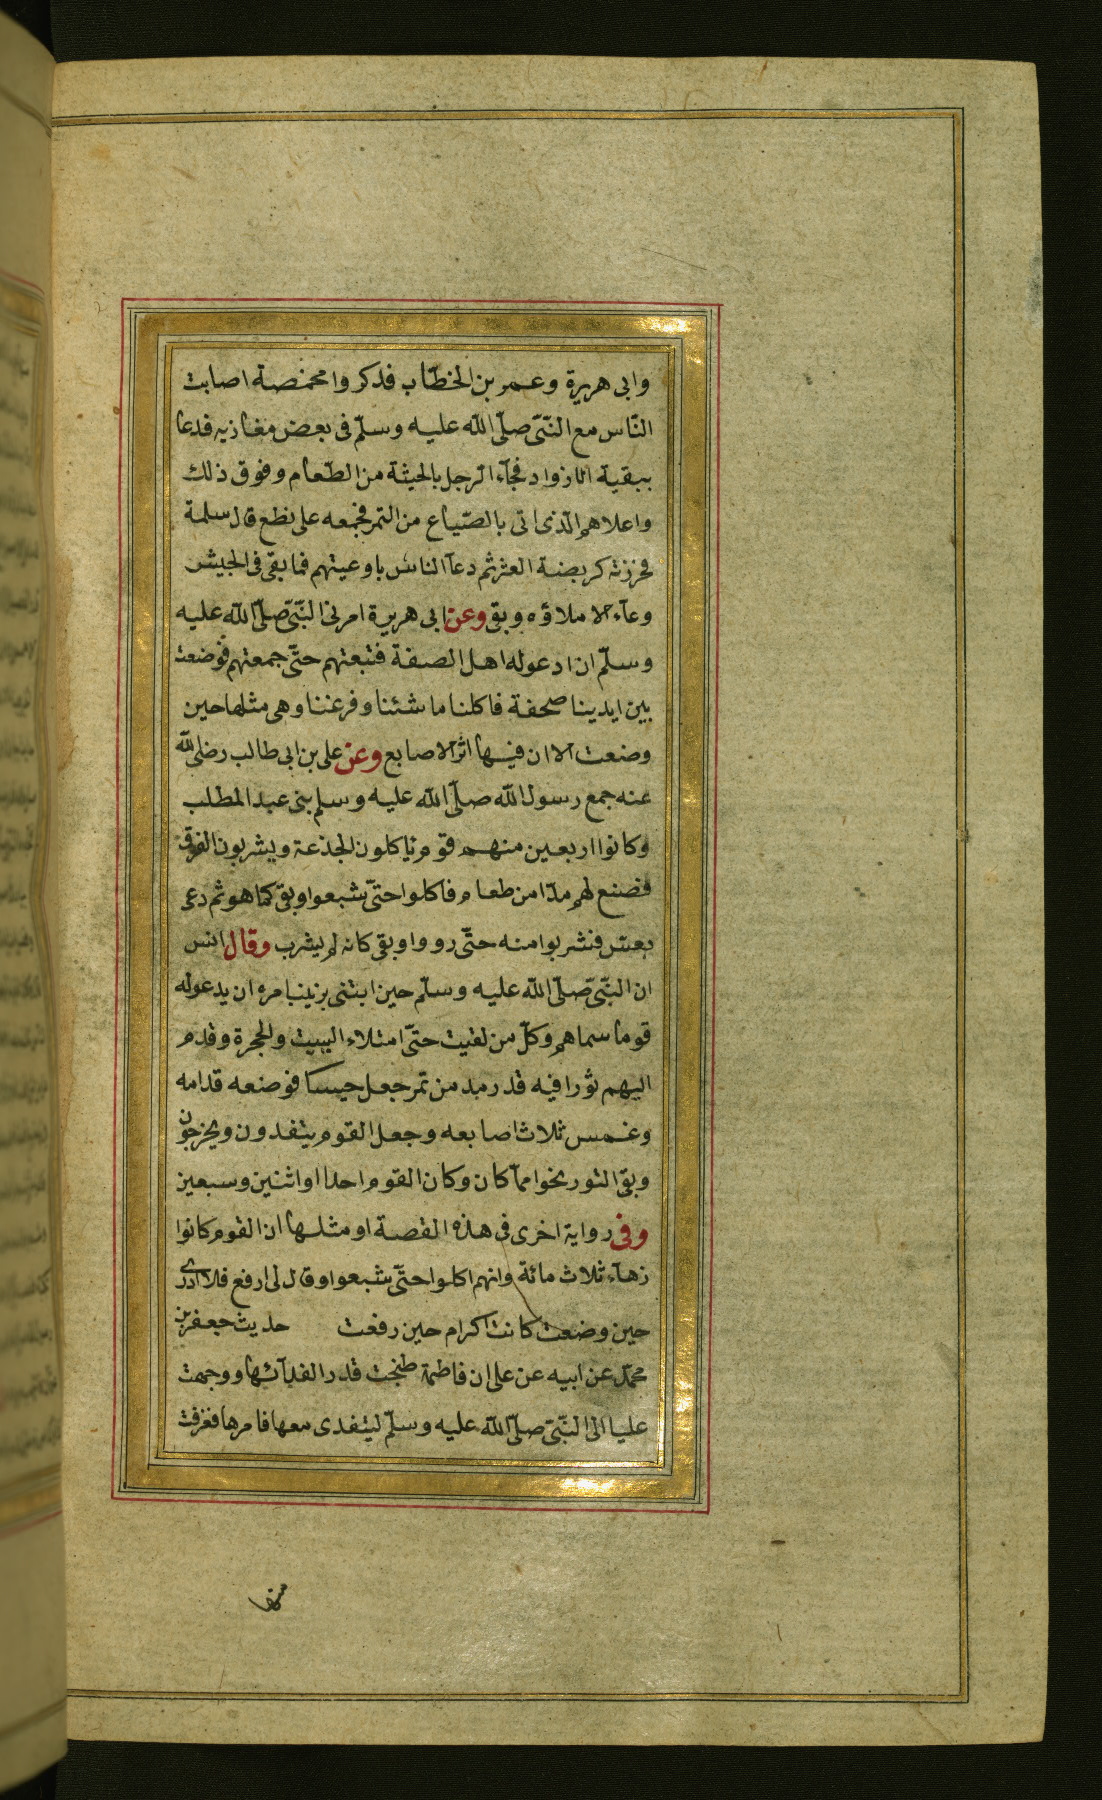 وابى هريرة وعمر بن الخطّاب فذكروا مخمصة اصابت
النّاس مع النّبىّ صلّى اللّه عليه وسلّم فى بعض مغازيه فدعا
ببقية الازواد فجآء الرجل بالحيثة من الطّعام وفوق ذلك
واعلاهم الّذى اتى بالصّياع من التمر فجمعه على نطع قال سلمة
فحزرته كربضة العنز ثم دعآ الناس باوعيتهم فما بقى فى الجيش
وعآء الا ملاؤه وبقى وعن ابى هريرة امرنى النّبىّ صلّى اللّه عليه
وسلّم ان ادعوله اهل الصفة فتبعتهم حتّى جمعتهم فوضعت
بين ايدينا صحفة فاكلنا ما شئنا وفرغنا وهى مثلها حين
وضعت الا ان فيها اثر الاصابع وعن على بن ابى طالب رضى اللّه
عنه جمع رسول اللّه صلّى اللّه عليه وسلم بنى عبد المطلب
وكانوا اربعين منهم قوم ياكلون الجذعة ويشربون الفرق
فصنع لهم مدّا من طعام فاكلوا حتّى شبعوا وبقى كما هو ثم دعى
بعس فشربوا منه حتّى رووا وبقى كانه لم يشرب وقال انس
ان النّبىّ صلّى اللّه عليه وسلّم حين ابتنى بزينب امره ان يدعوله
قوما سماهم وكلّ من لقيت حتّى امتلاء البيت والحجرة وقدم
اليهم تورا فيه قدر مد من تمر جعل حيسا فوضعه قدامه
وغمس ثلاث اصابعه وجعل القوم يتغدون ويخرجون
وبقى التور نحوا ممّا كان وكان القوم احدا او اثنين وسبعين
وفى رواية اخرى فى هذه القصة او مثلها ان القوم كانوا
زهآء ثلاث مائة وانهم اكلوا حتّى شبعوا وقال لى ارفع فلا ادرى
حين وضعت كانت اكرام حين رفعت حديث جعفر بن
محمّد عن ابيه عن على ان فاطمة طبخت قدر الغدآئها ووجهت
عليا الى النّبىّ صلّى اللّه عليه وسلّم ليتغدى معها فامرها فغرفت
منها